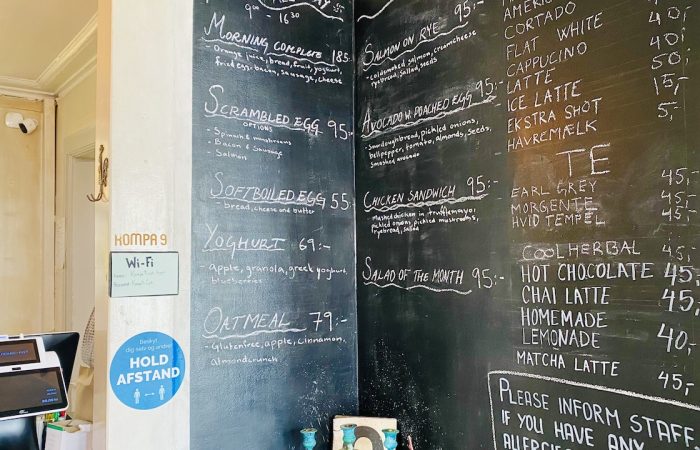 9:00 - 16:30
MORNING COMPLETE 185
- Orange juice, bread, fruit, yoghurt,
fried egg, bacon, sausage, cheese
SCRAMBLED EGG 95,-
OPTIONS
- Spinach & mushrooms
- Bacon & Sausage
- Salmon
SOFTBOILED EGG 55
- bread, cheese and butter
YOGHURT 69:-
- apple, granola, greek yoghurt,
blueberries
OATMEAL 79:-
- Glutenfree, apple, cinnamon,
almondcrunch
95:-
SALMON ON RYE
- Coldsmoked salmon, creamcheese
ryebread, salad, seeds
AVOCADO W. POACHED EGG 95:-
- Sourdoughbread, pickled onions,
bellpepper, tomato, almonds, seeds,
smashed avocado
CHICKEN SANDWICH 95:-
- Mashed chicken in trufflemayo,
pickled onions, pickled mushrooms,
ryebread, salad
SALAD OF THE MONTH 95:-
CORTADO
FLAT WHITE
CAPPUCINO
LATTE
ICE LATTE
EKSTRA SHOT
HAVREMÆLK
45,-
40,-
50,-
15,-
5,-
TE
EARL GREY 45,-
MORGENTE 45,-
HVID TEMPEL 45,-
COOL HERBAL 45,-
HOT CHOCOLATE 45,-
CHAI LATTE 45,-
HOMEMADE
LEMONADE 40,-
MATCHA LATTE 45,-
PLEASE INFORM STAFF
IF YOU HAVE ANY
ALLERGIES
KOMPA 9
Wi-Fi
Beskyt
dig selv og andre!
HOLD
AFSTAND